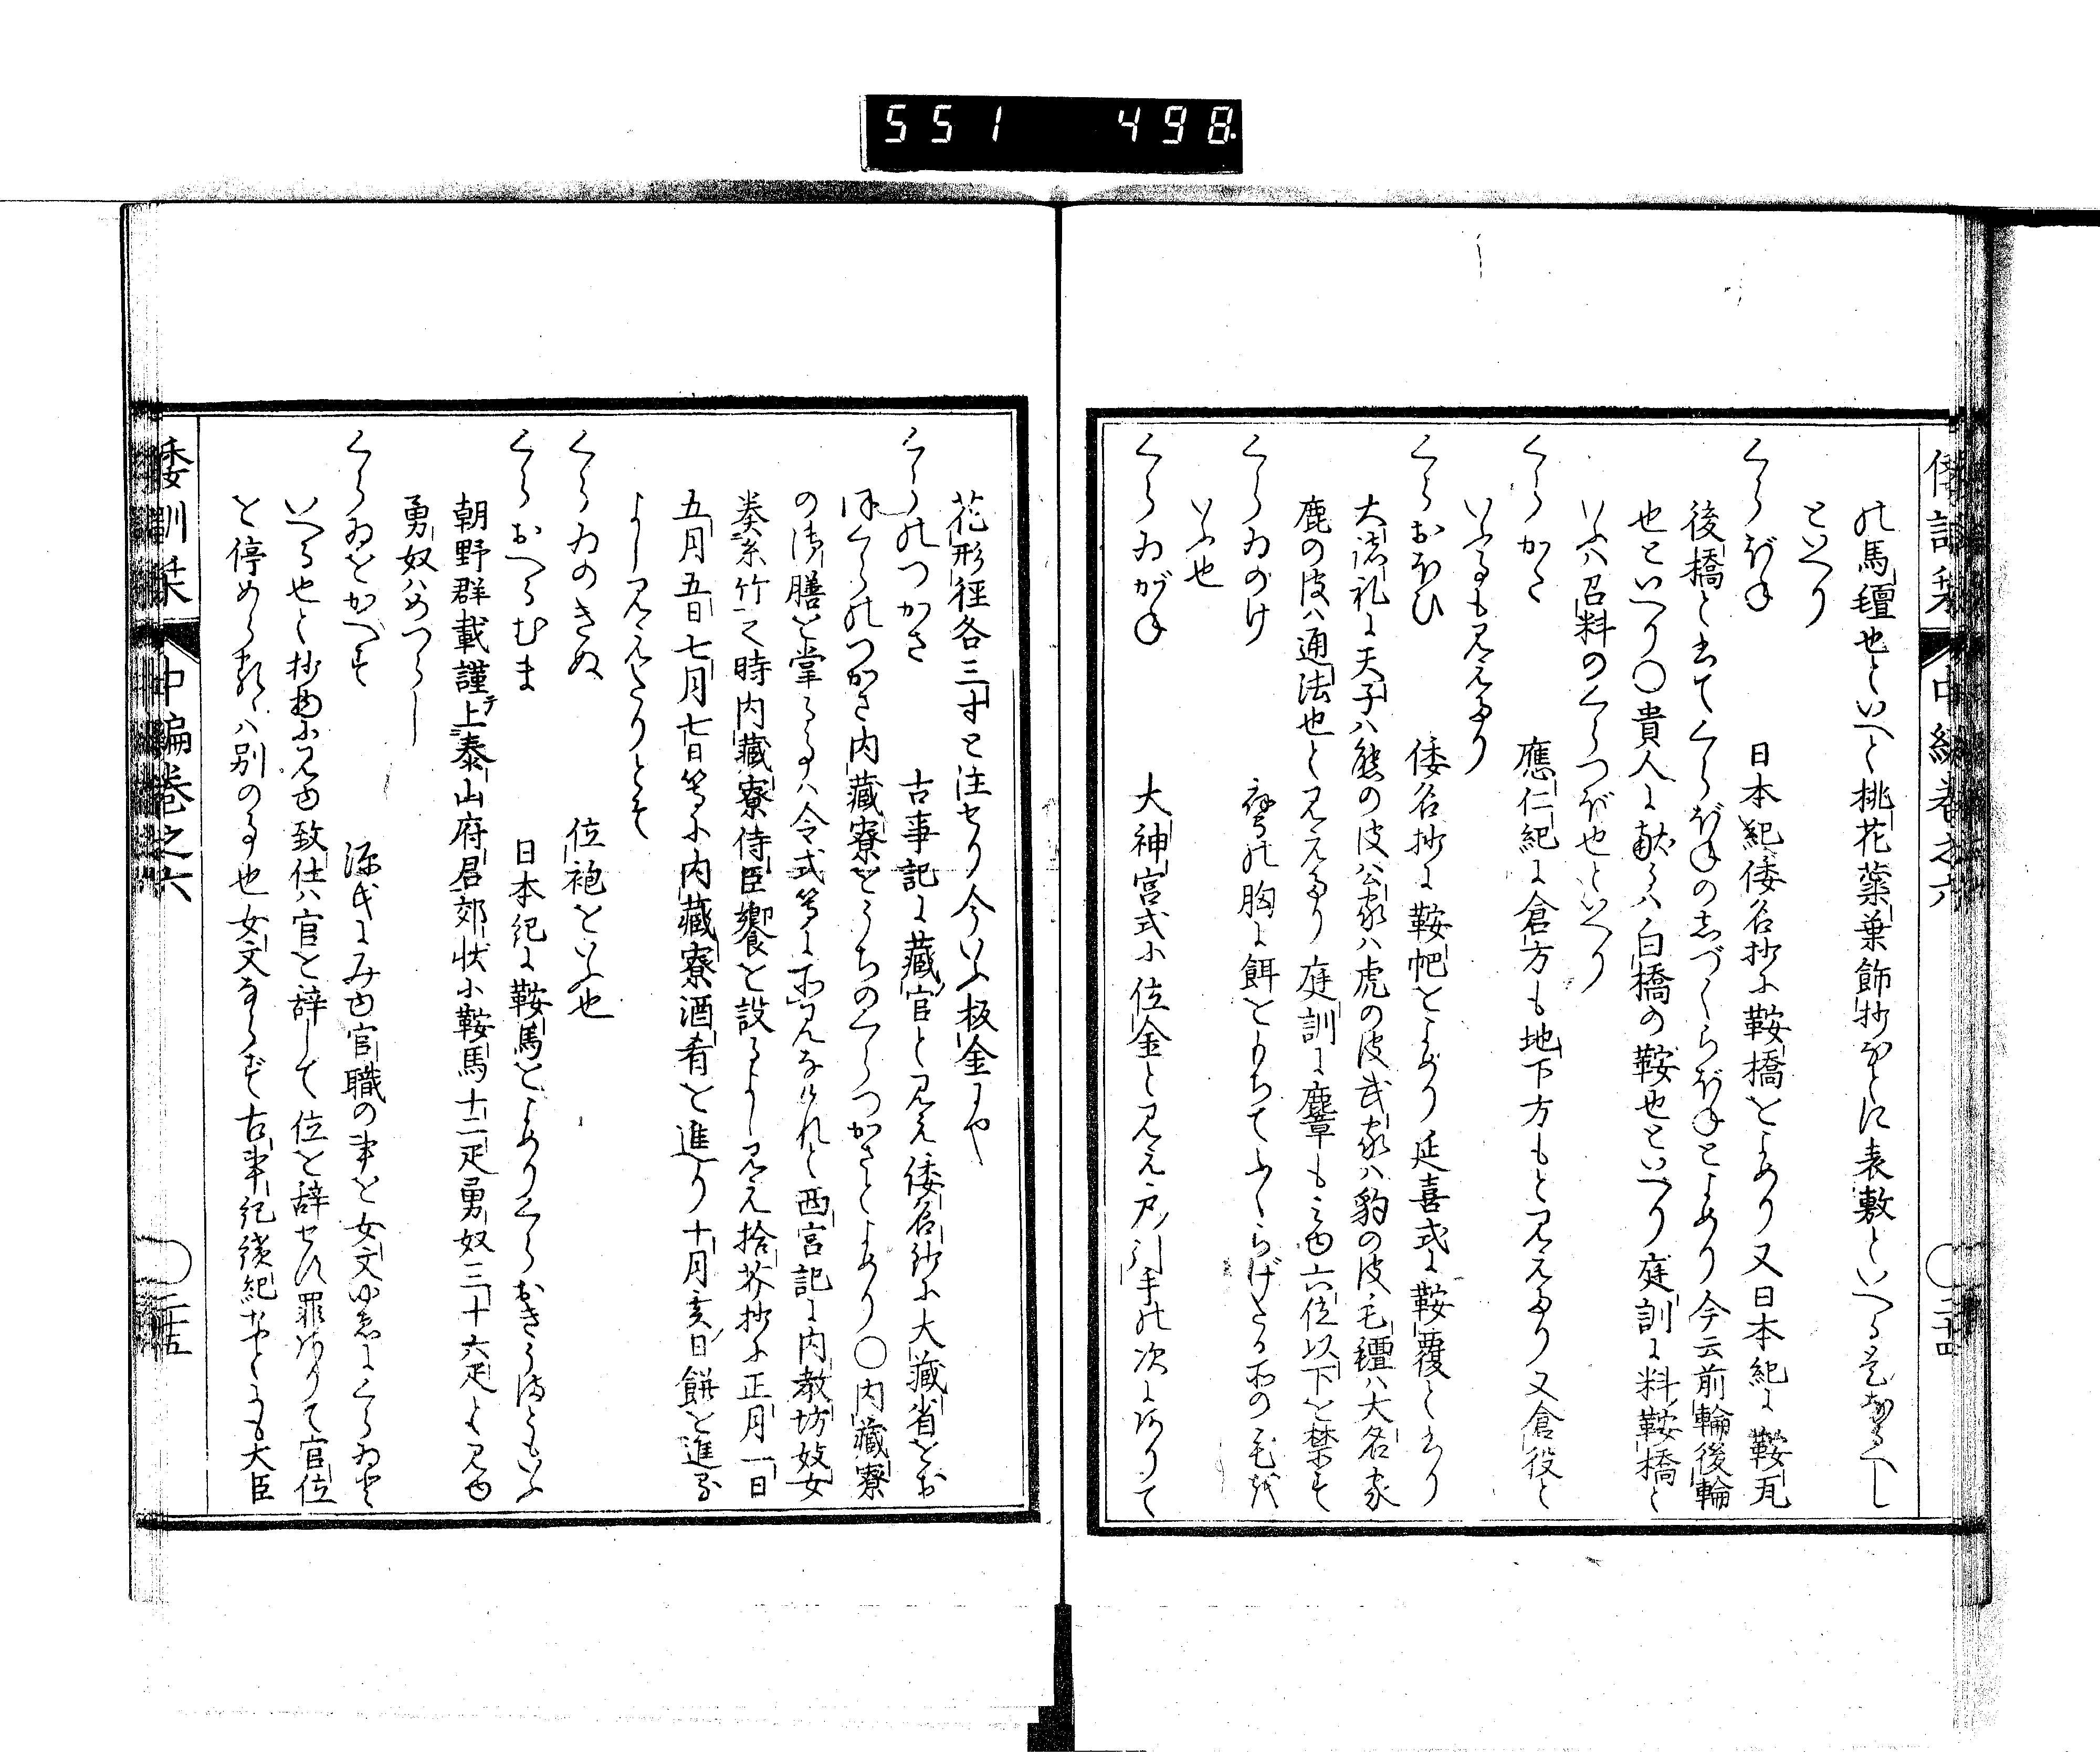 551 498
倭訓栞 中編巻之六 〇二十四
の馬氈也といへと桃花蘂葉飾抄なとに表敷といへる是なるへし
といへり
くらぼね 日本紀倭名抄に鞍橋とよめり又日本紀に鞍瓦
後橋と書てくらぼねのしづくらぼねとよめり今云前輪後輪
也といへり〇貴人に献るハ白橋の鞍也といへり庭訓に料鞍橋と
いふハ召料のくらつぼ也といへり
くらかた 應仁紀に倉方も地下方もと見えたり又倉役と
いふ事も見えたり
くらおほひ 倭名抄に鞍帊とよめり延喜式に鞍覆と書り
大諸礼に天子ハ熊の皮公家ハ虎の皮武家ハ豹の皮毛氈ハ大名家
鹿の皮ハ通法也と見えたり庭訓に麞章もみゆ六位以下を禁す
くらゐのけ 鷹の胸に餌をもちてふくらげたる所の毛を
いふ也
くらゐがね 大神宮式に位金と見え戸ノ引手の次にありて
花形徑各三寸と注せり今いふ板金にや
くらのつかさ 古事記に藏官と見え倭名鈔に大藏省をお
ほくらのつかさ内藏寮をうちのくらつかさとよめり〇内藏寮
の御膳を掌る事ハ令式等に所見なけれと西宮記に内教坊妓女
奏糸竹之時内藏寮侍臣饗を設るよし見え拾芥抄に正月一日
五月五日七月七日等に内藏寮酒肴を進り十月亥日餅を進る
よし見えたりとそ
くらゐのきぬ 位袍をいふ也
くらおへるむま 日本紀に鞍馬とよめりくらおきうまともいふ
朝野群載謹テ上泰山府君郊状に鞍馬十二疋勇奴三十六疋と見ゆ
勇奴ハめつらし
くらゐをかへす 源氏にみゆ官職の事を女文ゆゑにくらゐと
いへる也と抄物に見ゆ致仕ハ官を辞して位を辞せす罪ありて官位
を停めらるゝハ別の事也女文ならず古事紀続紀なとにも大臣
倭訓栞 中編巻之六 〇二十五